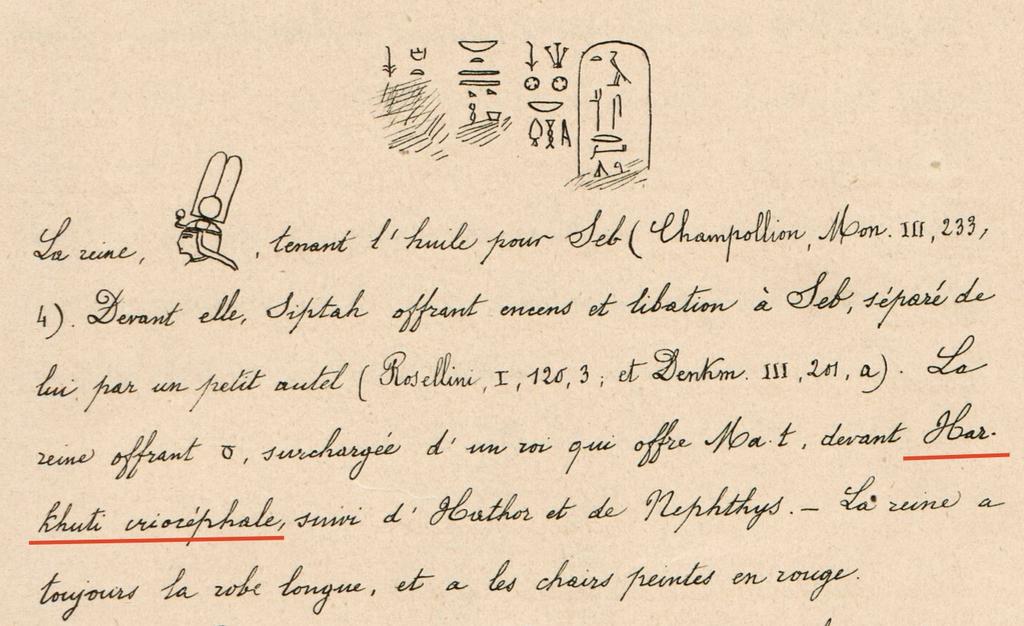 La reine, , tenant l'huile pour Seb (Champollion, Mon. III, 233,
4). Devant elle, Siptah offrant encens et libation à Seb, séparé de
lui par un petit autel (Rosellini, I, 120, 3; et Denkm. III, 201, a). La
reine offrant , surchargée d'un roi qui offre Ma.t, devant Har-
khuti criocéphale, suivi d'Hathor et de Nephthys. — La reine a
toujours la robe longue, et a les chairs peintes en rouge.